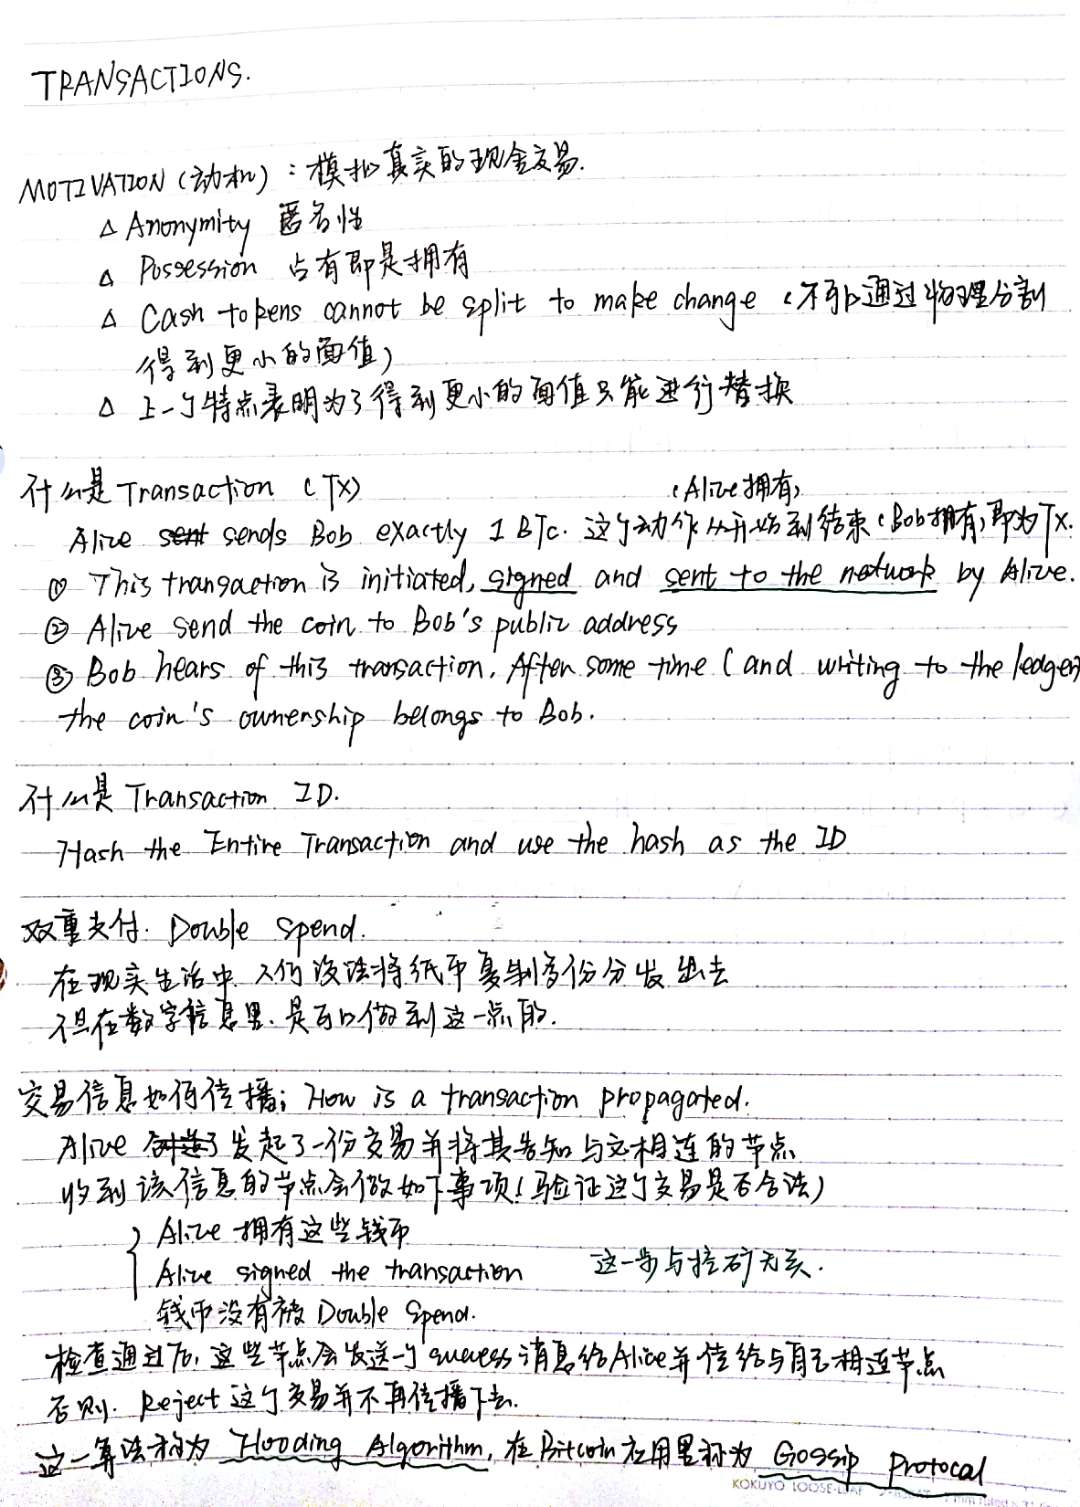 TRANSACTIONS.
MOTIVATION (动机) : 模拟真实的现金交易.
△ Anonymity 匿名性
△ Possession 占有即是拥有
△ Cash tokens cannot be split to make change (不可通过物理分割
得到更小的面值)
△ 上一个特点表明为了得到更小的面值只能进行替换
什么是 Transaction (TX)
(Alice拥有)
Alice sent sends Bob exactly 1 BTC. 这个动作从开始到结束(Bob拥有)即为TX.
① This transaction is initiated, signed and sent to the network by Alice.
② Alice send the coin to Bob's public address
③ Bob hears of this transaction. After some time (and writing to the ledger)
the coin's ownership belongs to Bob.
什么是 Transaction ID.
Hash the Entire Transaction and use the hash as the ID
双重支付. Double Spend.
在现实生活中 人们没法将纸币复制多份分发出去
但在数字信息里. 是可以做到这一点的.
交易信息如何传播; How is a transaction propagated.
Alice 发起了一份交易并将其告知与之相连的节点
收到该信息的节点会做如下事项(验证这个交易是否合法)
Alice 拥有这些钱币
Alice signed the transaction 这一步与挖矿无关.
钱币没有被 Double Spend.
检查通过后, 这些节点会发送一个 success 消息给Alice并传给与自己相连节点
否则. Reject 这个交易并不再传播下去.
这一算法称为 Flooding Algorithm, 在Bitcoin应用里称为 Gossip Protocal
KOKUYO LOOSE-LEAF